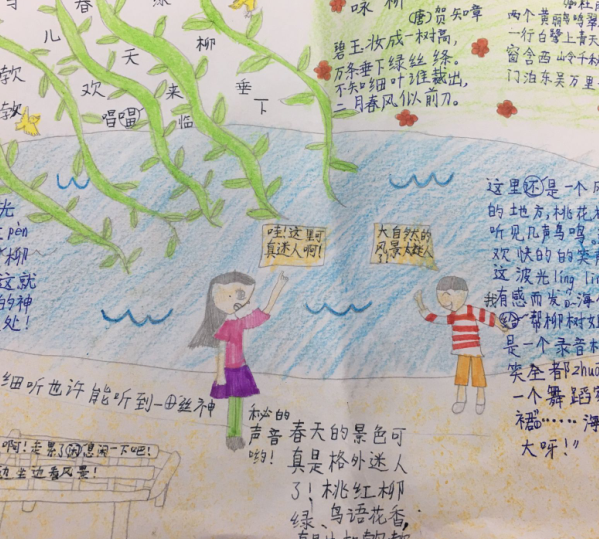 春
儿 柳
天
软 欢 来 垂
软 唱 临 下
咏柳
(唐)贺知章
碧玉妆成一树高,
万条垂下绿丝绦。
不知细叶谁裁出,
二月春风似剪刀。
两个黄鹂鸣翠
一行白鹭上青天
窗含西岭千秋
门泊东吴万里
光
pèn
柳
这就
的神
处!
哇!这里可
真迷人啊!
大自然的
风景太迷人
了!
这里还是一个风
的地方,桃花
听见几声鸟鸣。
欢快的的笑声
这波光ling lin
我有感而发
帮柳树姐
是一个录音机
笑全都zhuō
一个舞蹈家
……海
大呀!"
细听也许能听到一丝神
秘的
声音
哟!
啊!走累了 息闲一下吧!
边坐边看风景!
春天的景色可
真是格外迷人
了!桃红柳
绿、鸟语花香,